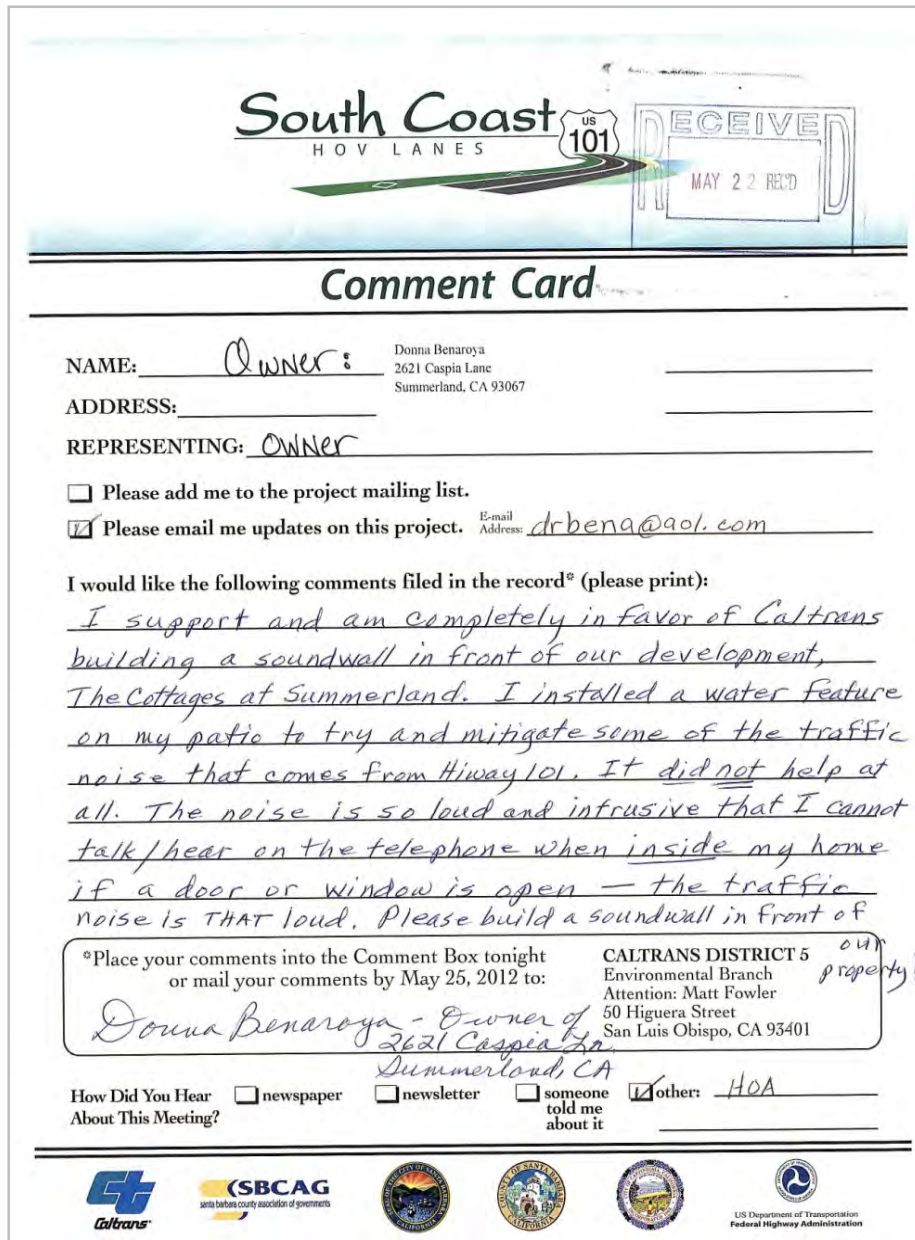 South Coast
HOV LANES
US
101
RECEIVED
MAY 22 REC'D
Comment Card
NAME: Owner:
Donna Benaroya
2621 Caspia Lane
Summerland, CA 93067
ADDRESS:
REPRESENTING: OWNER
Please add me to the project mailing list.
Please email me updates on this project. E-mail Address: drbena@aol.com
I would like the following comments filed in the record* (please print):
I support and am completely in favor of Caltrans
building a soundwall in front of our development,
The Cottages at Summerland. I installed a water feature
on my patio to try and mitigate some of the traffic
noise that comes from Hiway 101. It did not help at
all. The noise is so loud and intrusive that I cannot
talk/hear on the telephone when inside my home
if a door or window is open — the traffic
noise is THAT loud. Please build a soundwall in front of
our
property!
*Place your comments into the Comment Box tonight
or mail your comments by May 25, 2012 to:
CALTRANS DISTRICT 5
Environmental Branch
Attention: Matt Fowler
50 Higuera Street
San Luis Obispo, CA 93401
Donna Benaroya - Owner of
2621 Caspia Ln
Summerland, CA
How Did You Hear
About This Meeting?
newspaper
newsletter
someone
told me
about it
other: HOA
Caltrans
SBCAG
santa barbara county association of governments
US Department of Transportation
Federal Highway Administration